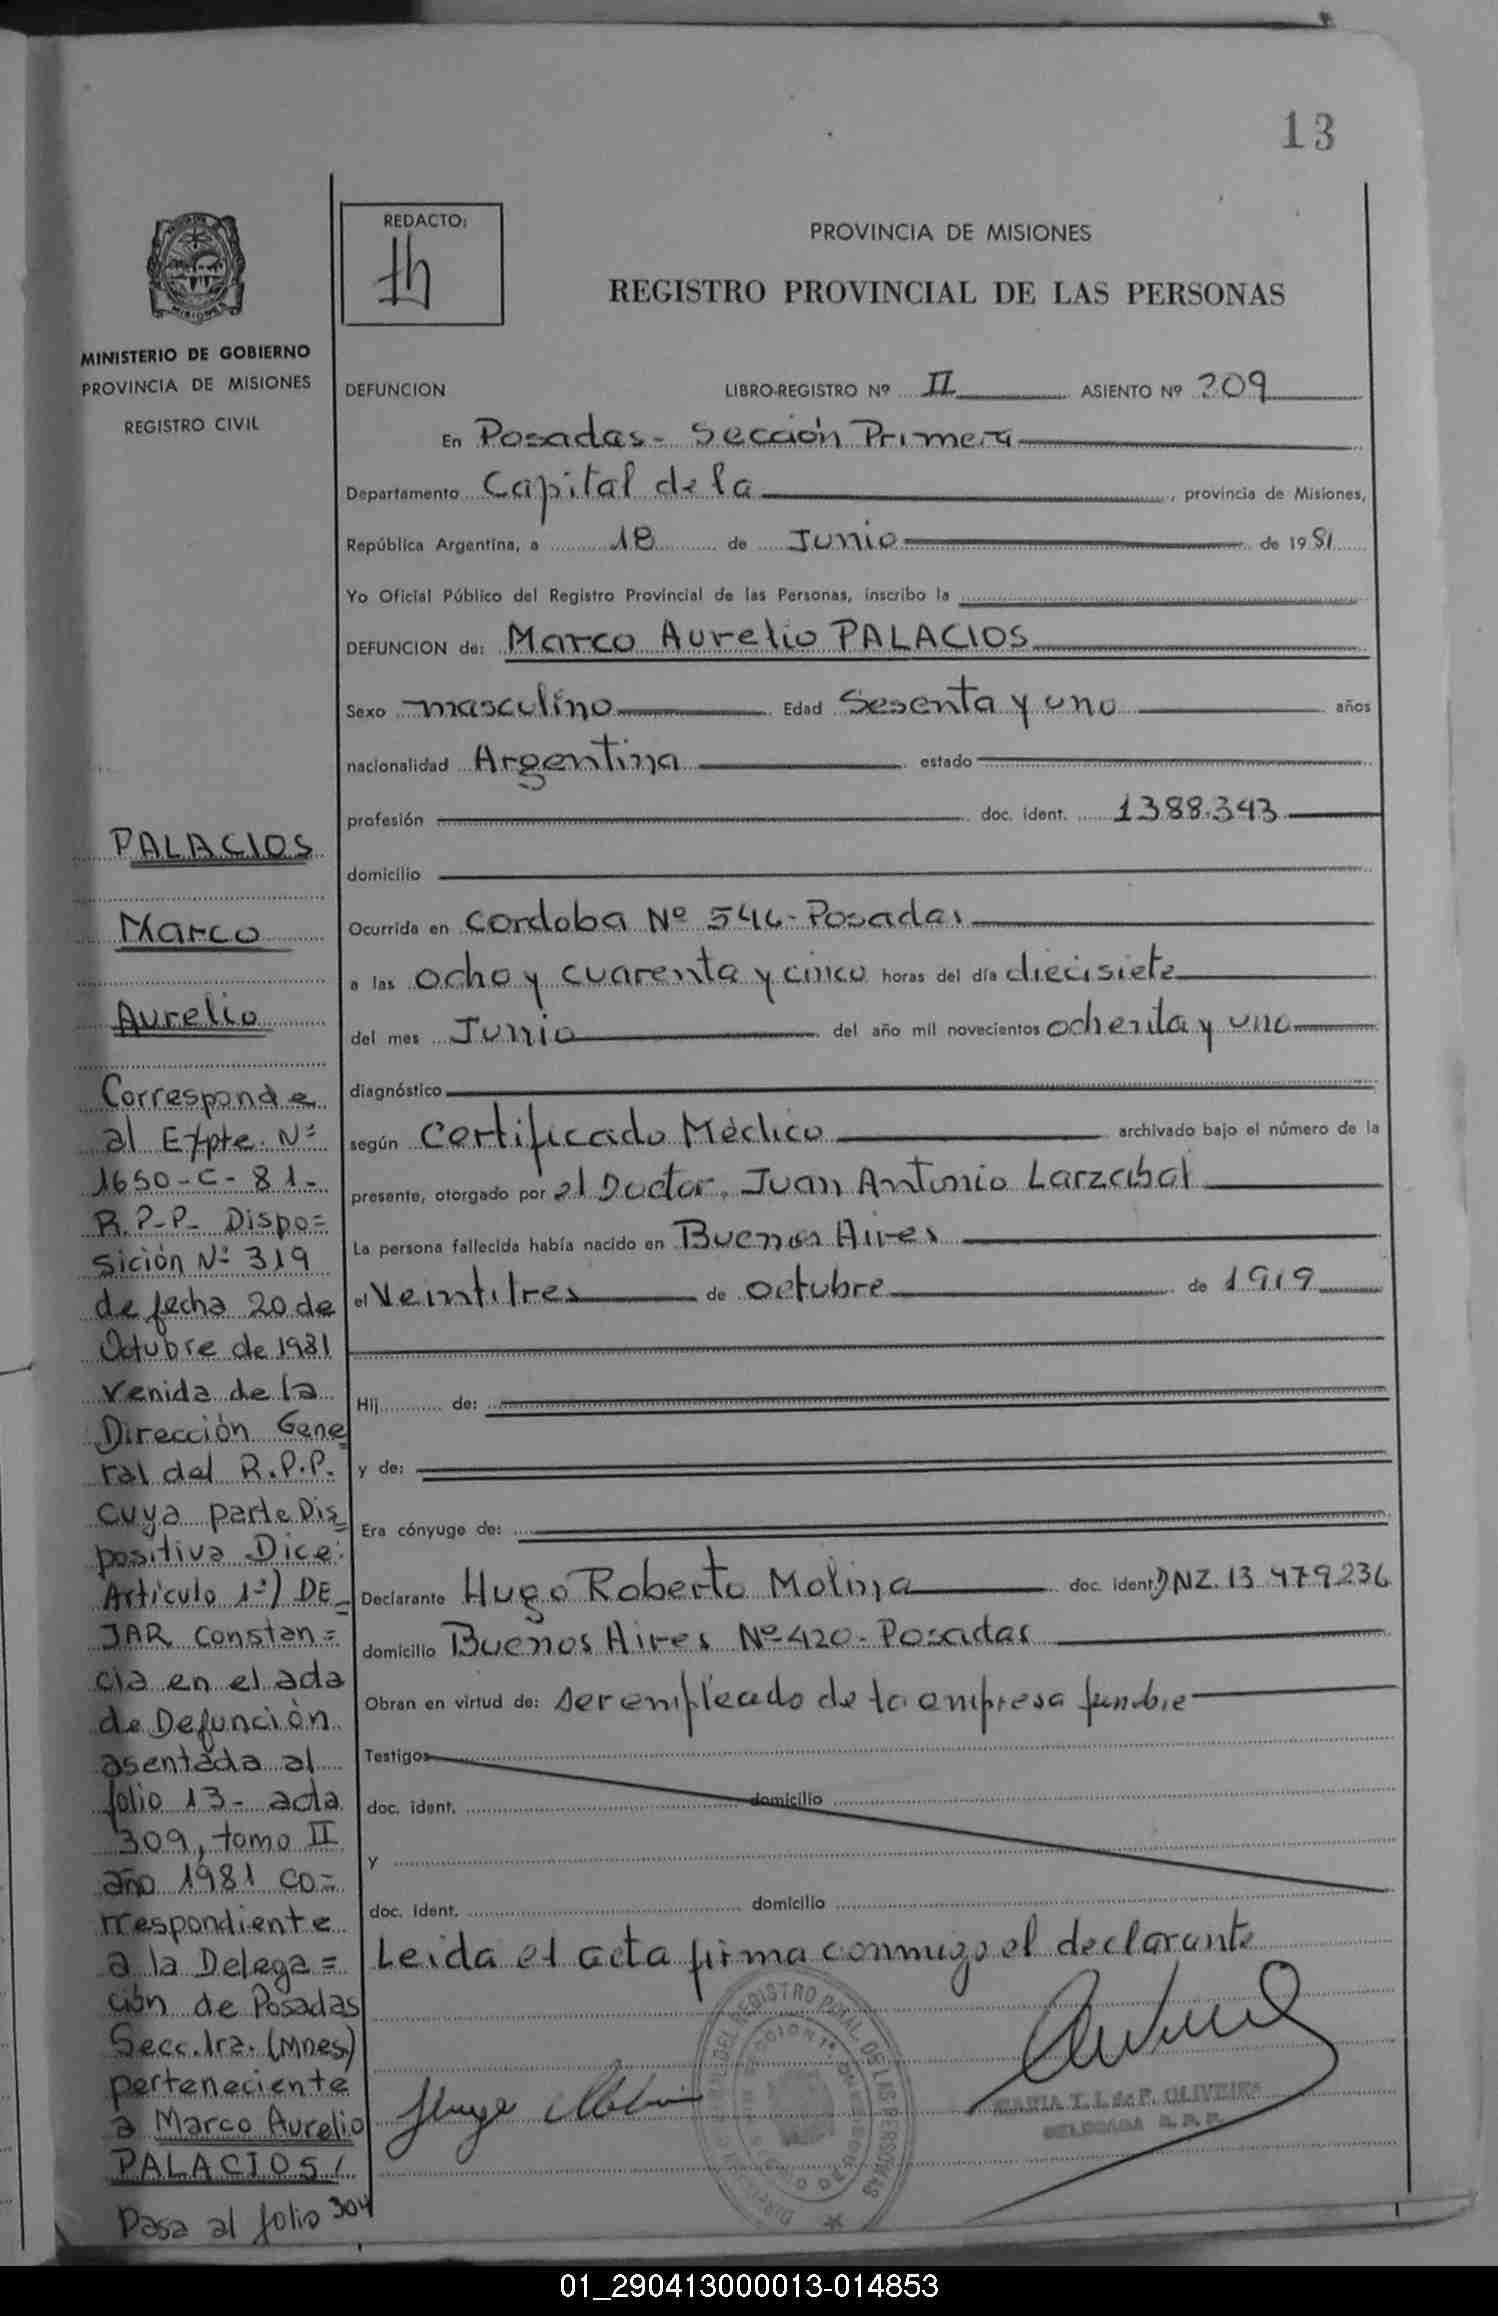 13
REDACTO:
PROVINCIA DE MISIONES
REGISTRO PROVINCIAL DE LAS PERSONAS
MISIONES
MINISTERIO DE GOBIERNO
PROVINCIA DE MISIONES
REGISTRO CIVIL
PALACIOS
Marco
Aurelio
Corresponde
al Expte. Nº
1650-C-81-
R.P-P- Dispo=
sición Nº 319
de fecha 20 de
Octubre de 1981
venida de la
Dirección Gene
ral del R.P.P.
cuya parte Dis_
positiva Dice:
Artículo 1º) DE_
JAR constan=
cia en el acta
de Defunción
asentada al
folio 13- acta
309, tomo II
año 1981 co=
rrespondiente
a la Delega=
ción de Posadas
Secc. 1ra. (Mnes)
perteneciente
a Marco Aurelio
PALACIOS/
Pasa al folio 304
DEFUNCION LIBRO-REGISTRO Nº II ASIENTO Nº 209
En Posadas- Sección Primera
Departamento Capital de la, provincia de Misiones,
República Argentina, a 18 de Junio de 1981
Yo Oficial Público del Registro Provincial de las Personas, inscribo la
DEFUNCION de: Marco Aurelio PALACIOS
Sexo masculino Edad Sesenta y uno años
nacionalidad Argentina estado
profesión doc. ident. 1388.343
domicilio
Ocurrida en Cordoba Nº 546- Posadas
a las ocho y cuarenta y cinco horas del día diecisiete
del mes Junio del año mil novecientos ochenta y uno
diagnóstico
según Certificado Médico archivado bajo el número de la
presente, otorgado por el Doctor. Juan Antonio Larzabal
La persona fallecida había nacido en Buenos Aires
el Veintitres de octubre de 1919
Hij de:
y de:
Era cónyuge de:
Declarante Hugo Roberto Molina doc. ident. 13.479.236
domicilio Buenos Aires Nº 420- Posadas
Obran en virtud de: ser empleado de la empresa funebre
Testigos
doc. ident. domicilio
y
doc. ident. domicilio
Leida el acta firma conmigo el declarante
MARIA T. I. de F. OLIVEIRA
DELEGADA R. P. P.
01_290413000013-014853